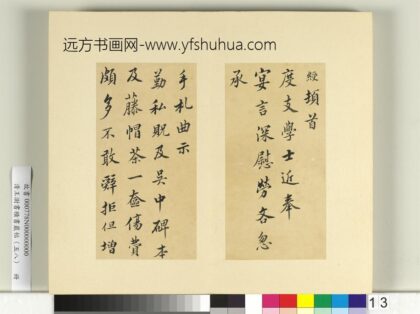 远方书画网-www.yfshuhua.com
頓首
度支學士近奉
宴言深慰勞吝忽
承
手札曲示
勤私貺及吴中碑本
及藤帽茶一奩傷費
頗多不敢辭拒但增
13